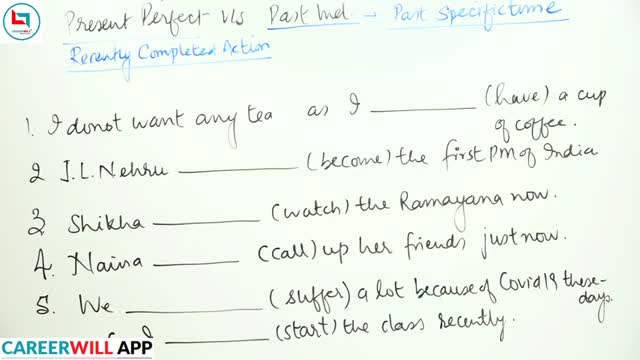 Present Perfect V/s Past Ind. → Past Specific time
Recently Completed Action
1. I donot want any tea as I ________ (have) a cup of coffee.
2 J.L.Nehru ________ (become) the first PM of India
3. Shikha ________ (watch) the Ramayana now.
4. Naina ________ (call) up her friends just now.
5. We ________ (suffer) a lot because of Covid19 these-days.
I ________ (start) the class recently.
CAREERWILL
CAREERWILL APP
CAREERWILL APP